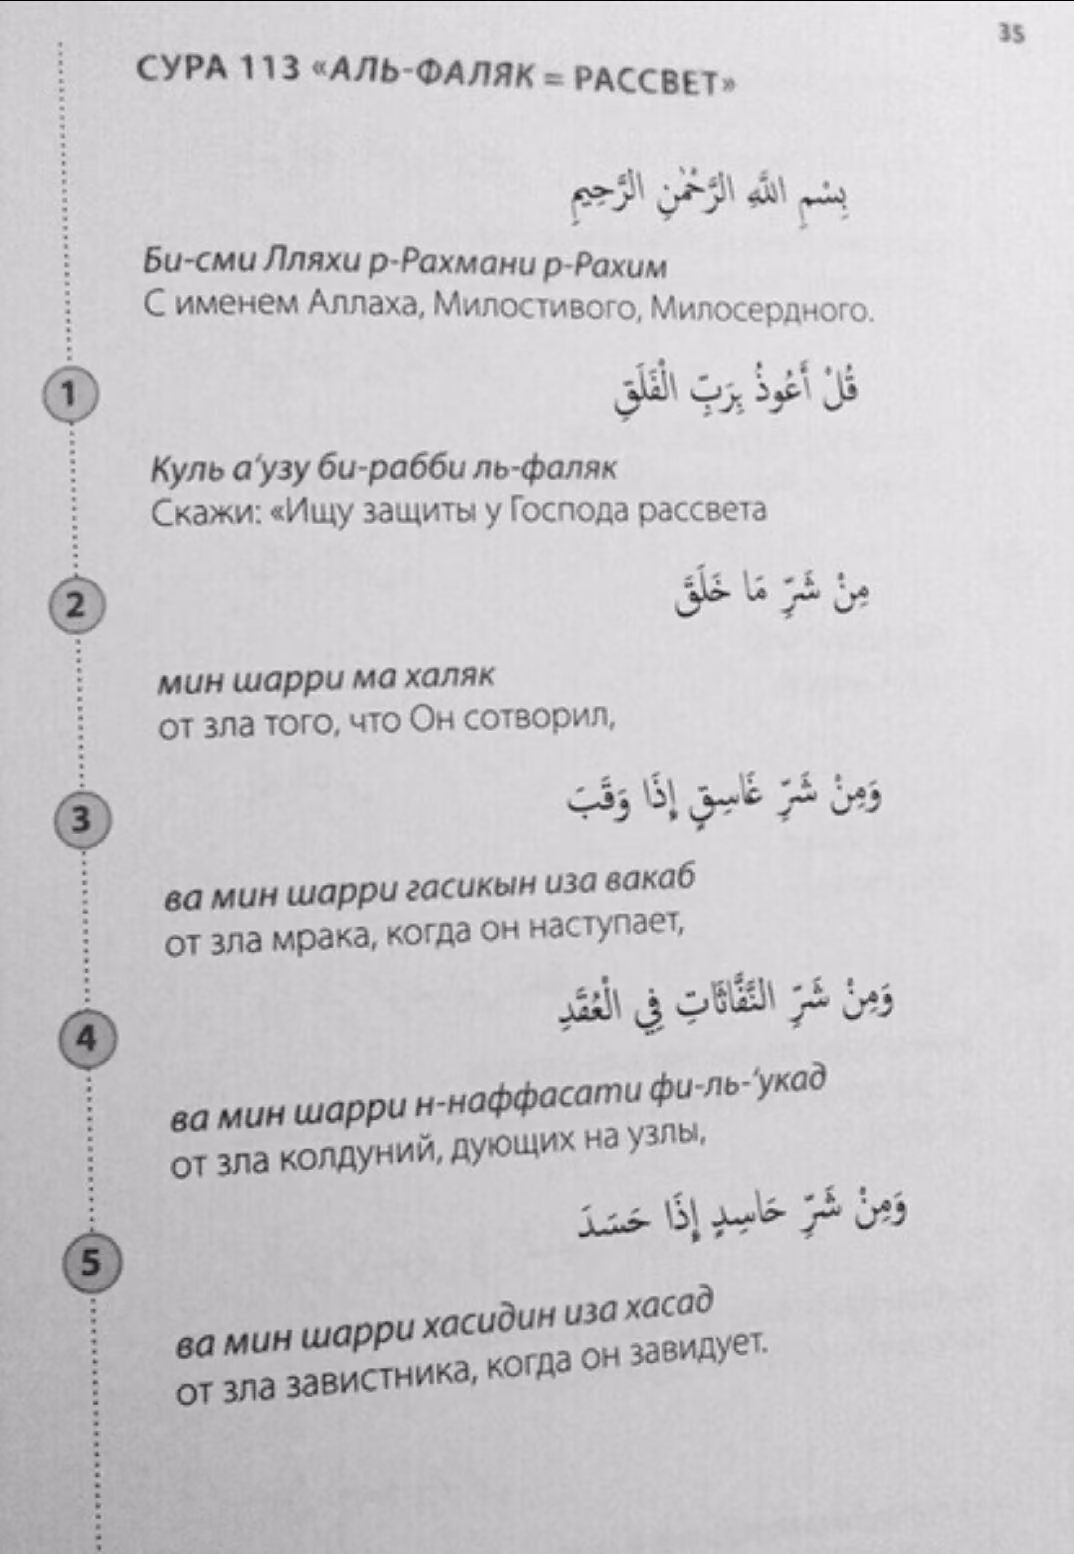 35
СУРА 113 «АЛЬ-ФАЛЯК = РАССВЕТ»
بِسْمِ اللَّهِ الرَّحْمٰنِ الرَّحِيمِ
Би-сми Лляхи р-Рахмани р-Рахим
С именем Аллаха, Милостивого, Милосердного.
1
قُلْ أَعُوذُ بِرَبِّ الْفَلَقِ
Куль а‘узу би-рабби ль-фаляк
Скажи: «Ищу защиты у Господа рассвета
2
مِنْ شَرِّ مَا خَلَقَ
мин шарри ма халяк
от зла того, что Он сотворил,
3
وَمِنْ شَرِّ غَاسِقٍ إِذَا وَقَبَ
ва мин шарри гасикын иза вакаб
от зла мрака, когда он наступает,
4
وَمِنْ شَرِّ النَّفَّاثَاتِ فِي الْعُقَدِ
ва мин шарри н-наффасати фи-ль-‘укад
от зла колдуний, дующих на узлы,
5
وَمِنْ شَرِّ حَاسِدٍ إِذَا حَسَدَ
ва мин шарри хасидин иза хасад
от зла завистника, когда он завидует.